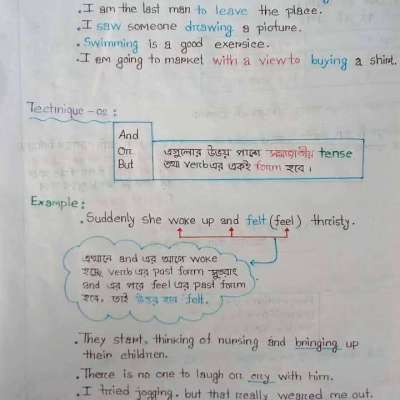 .I am the last man to leave the place.
.I saw someone drawing a picture.
.Swimming is a good exersice.
.I am going to market with a view to buying a shirt.
Technique-02:
And
Or
But
এগুলোর উভয় পাশে সমজাতীয় tense
তথা verb এর একই form হবে।
Example:
.Suddenly she woke up and felt (feel) thristy.
এখানে and এর আগে woke
হচ্ছে verb এর past form সুতরাং
and এর পরে feel এর past form
হবে, তাই উত্তর হবে felt.
.They start, thinking of nursing and bringing up
their children.
.There is no one to laugh or cry with him.
.I tried jogging, but that really wearied me out.